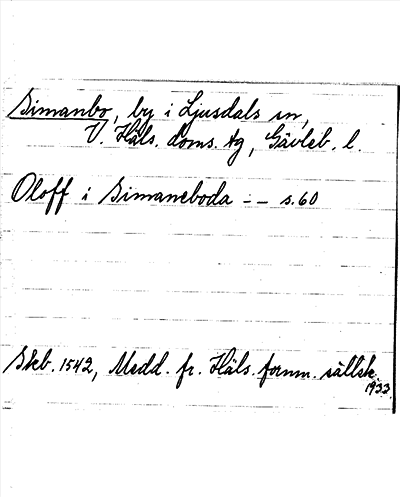 Simanbo, by i Ljusdals sn,
V. Häls. doms. tg, Gävleb. l.
Oloff i Simaneboda - - s. 60
Skb. 1542, Medd. fr. Häls. fornm. sällsk.
1933.